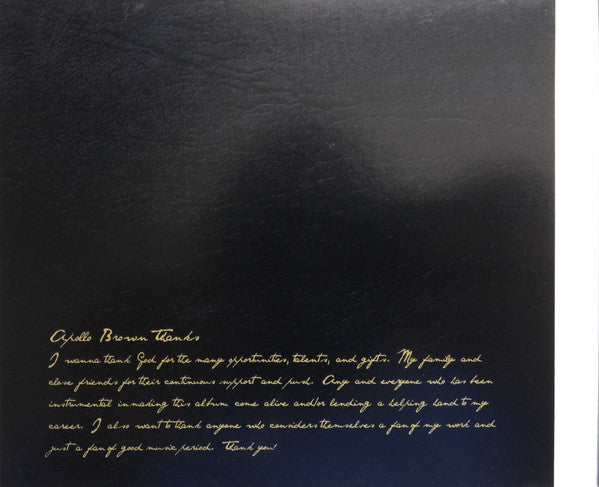 Apollo Brown Thanks
I wanna thank God for the many opportunities, talents, and gifts. My family and
close friends for their continuous support and push. Any and everyone who has been
instrumental in making this album come alive and/or lending a helping hand to my
career. I also want to thank anyone who considers themselves a fan of my work and
just a fan of good music period. Thank you!